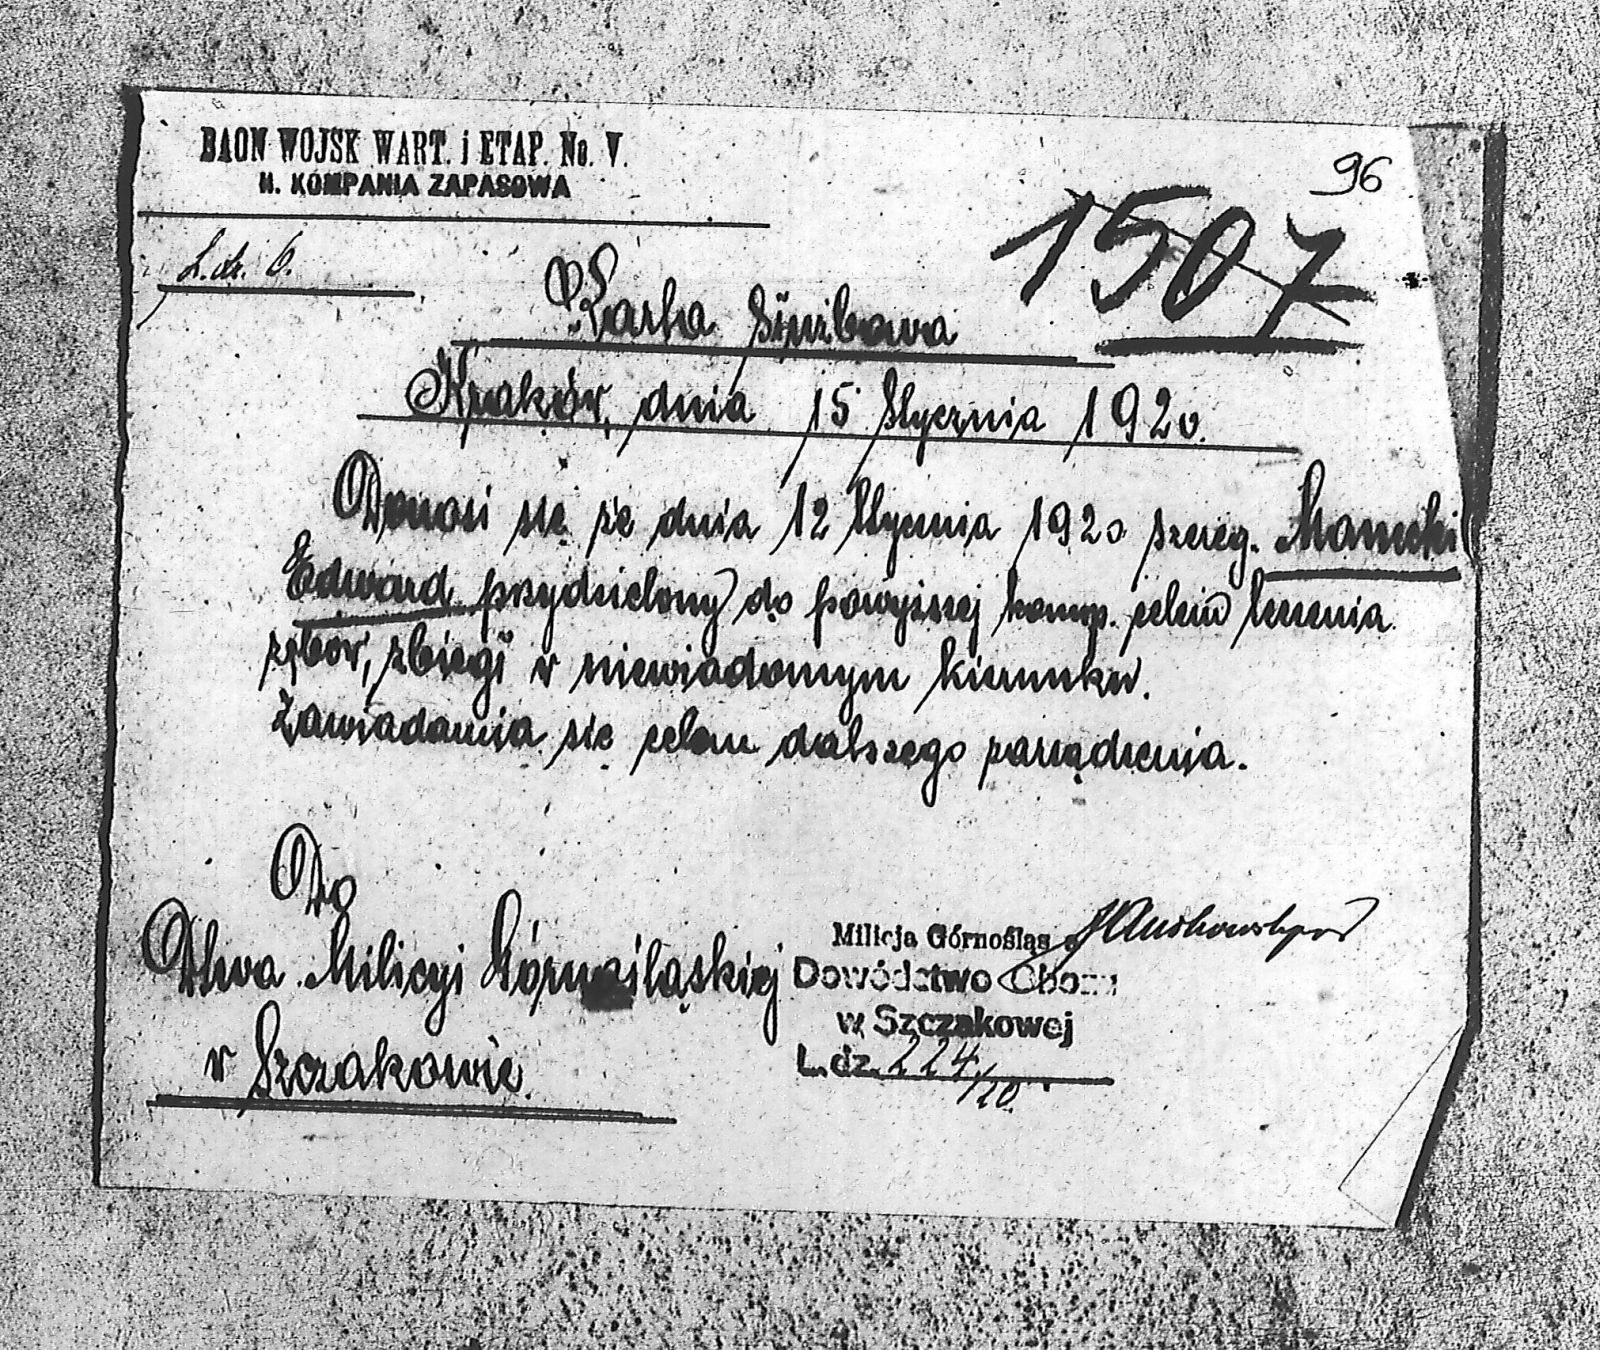 BAON WOJSK WART. i ETAP. No. V.
II. KOMPANIA ZAPASOWA
96
1507
L. dz. 6.
Karta służbowa
Kraków, dnia 15 Stycznia 1920.
Donosi się że dnia 12 Stycznia 1920 szereg. Manecki
Edward przydzielony do powyższej komp. celem leczenia
zębów, zbiegł w niewiadomym kierunku.
Zawiadamia się celem dalszego zarządzenia.
Do
Dtwa Milicyi Górnośląskiej
w Szczakowie
Milicja Górnośląs
Dowództwo Obozu
w Szczakowej
L. dz. 224/20